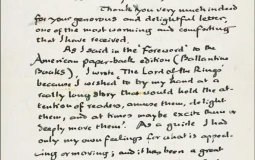 Thank you very much indeed
for your generous and delightful letter,
one of the most warming and comforting
that I have received.
As I said in the 'Foreword' to the
American paper-back edition (Ballantine
Books), I wrote 'The Lord of the Rings'
because I wished to try my hand at a
really long story that would hold the at-
tention of readers, amuse them, delight
them, and at times maybe excite them or
deeply move them'. As a guide I had
only my own feelings for what is appeal-
ing or moving; and it has been a great